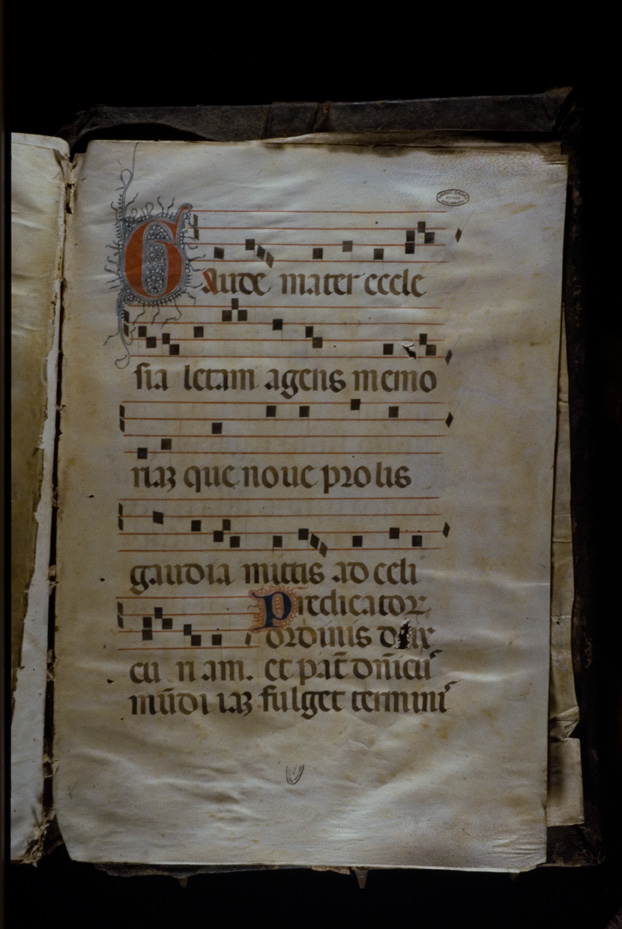 Gaude mater eccle
sia letam agens memo
riaꝫ que noue prolis
gaudia mittis ad celi
Predicatoꝛ
ordinis dux
cu n am. et pat̄ dn̄icu᷑
mūdi iaꝫ fulget termini᷑